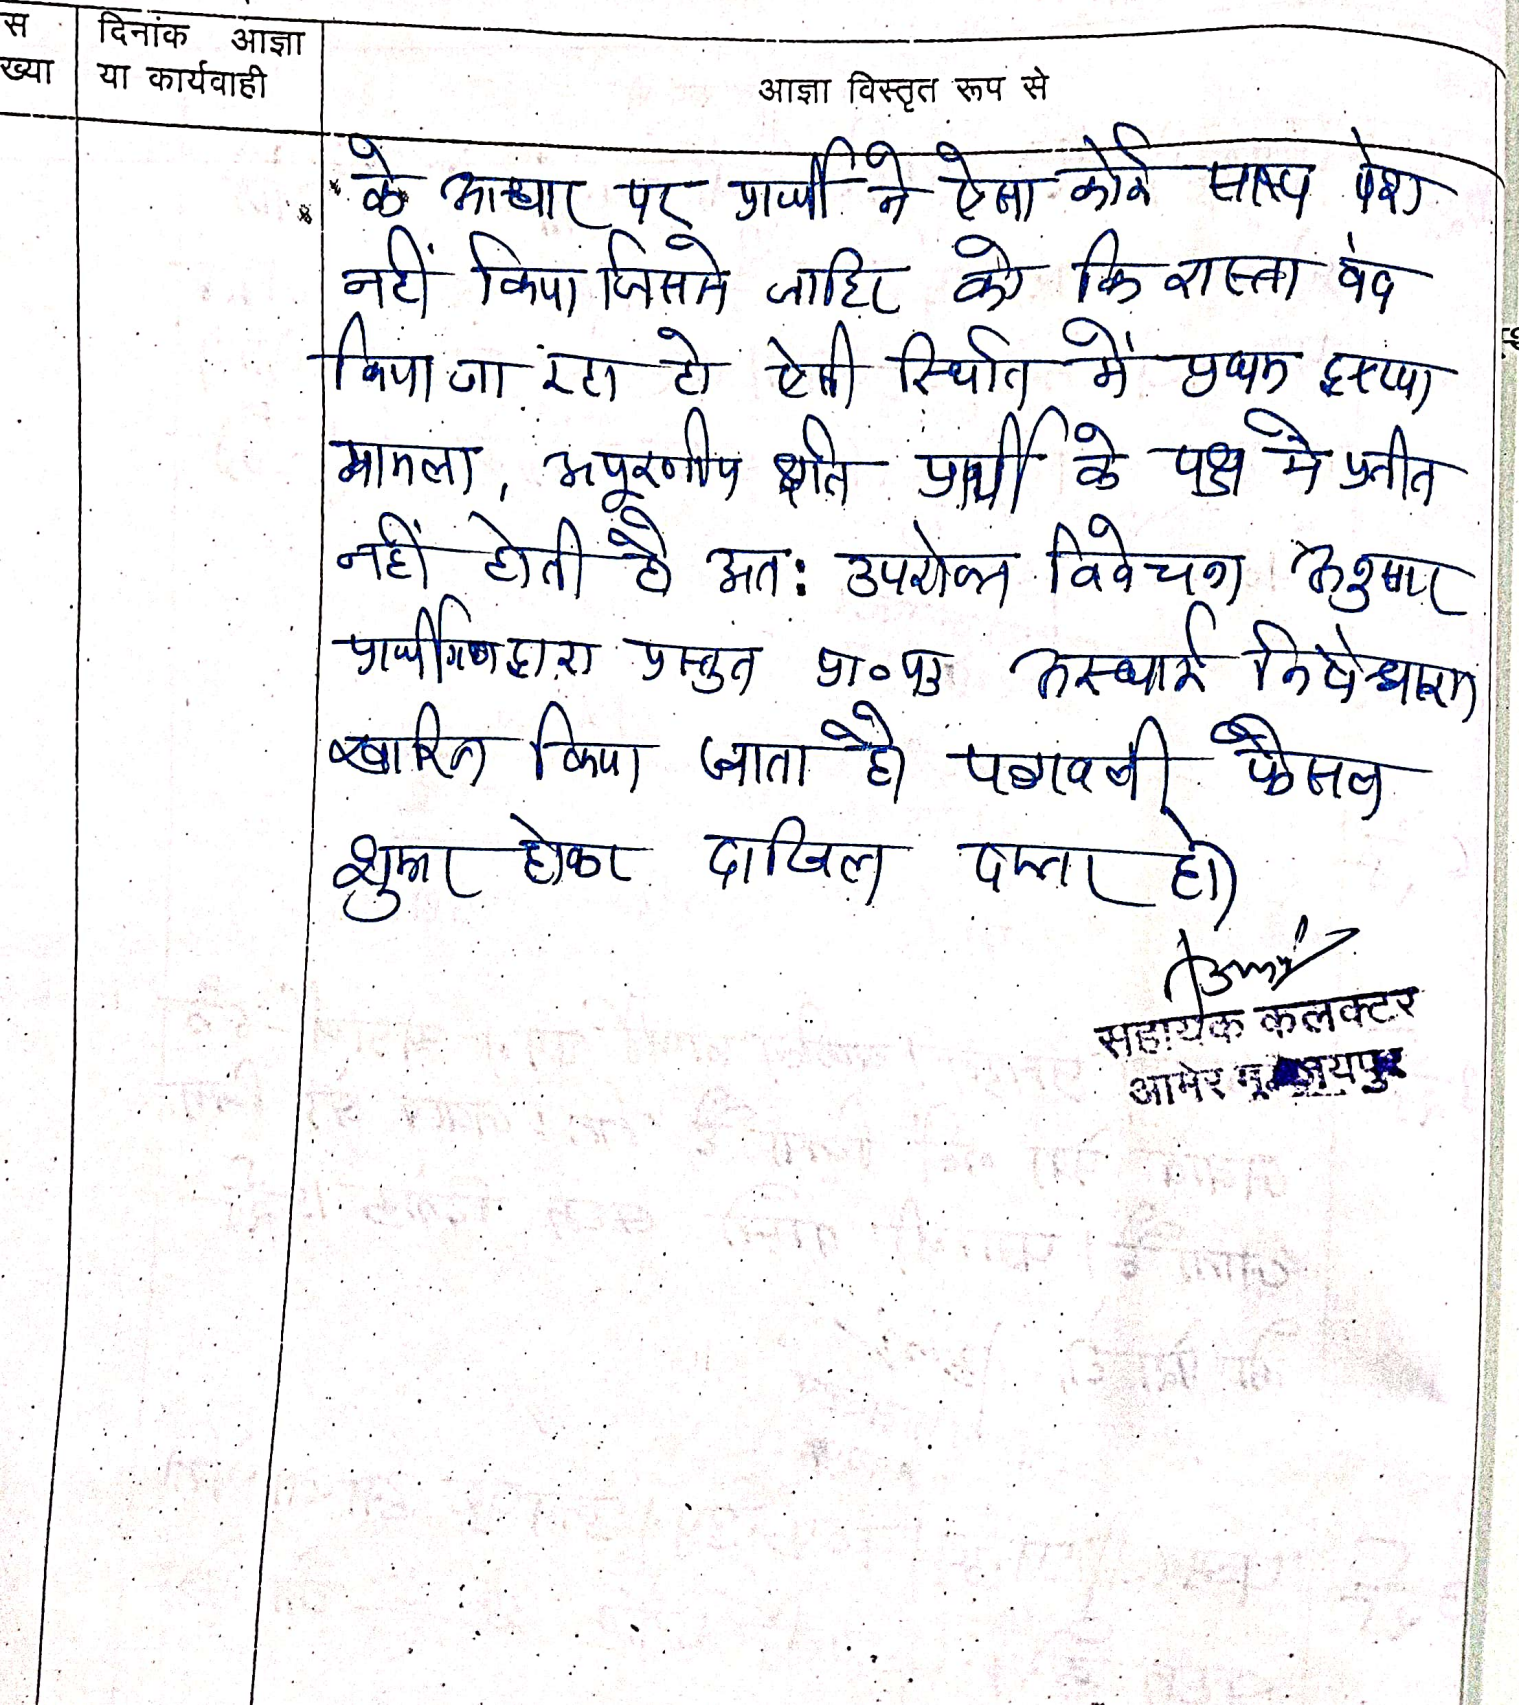 स दिनांक आज्ञा
ख्या या कार्यवाही आज्ञा विस्तृत रूप से
के आधार पर प्रार्थी ने ऐसा कोई साक्ष्य पेश
नहीं किया जिससे जाहिर हो कि रास्ता बंद
किया जा रहा हो ऐसी स्थिति में प्रथम दृष्टया
मामला, अपूरणीय क्षति प्रार्थी के पक्ष मे प्रतीत
नहीं होती है अत: उपरोक्त विवेचन अनुसार
प्रार्थीगण द्वारा प्रस्तुत प्रा०पत्र अस्थाई निषेधाज्ञा
खारिज किया जाता है पत्रावली फैसल
शुमार होकर दाखिल दफ्तर हो
सहायक कलक्टर
आमेर जयपुर